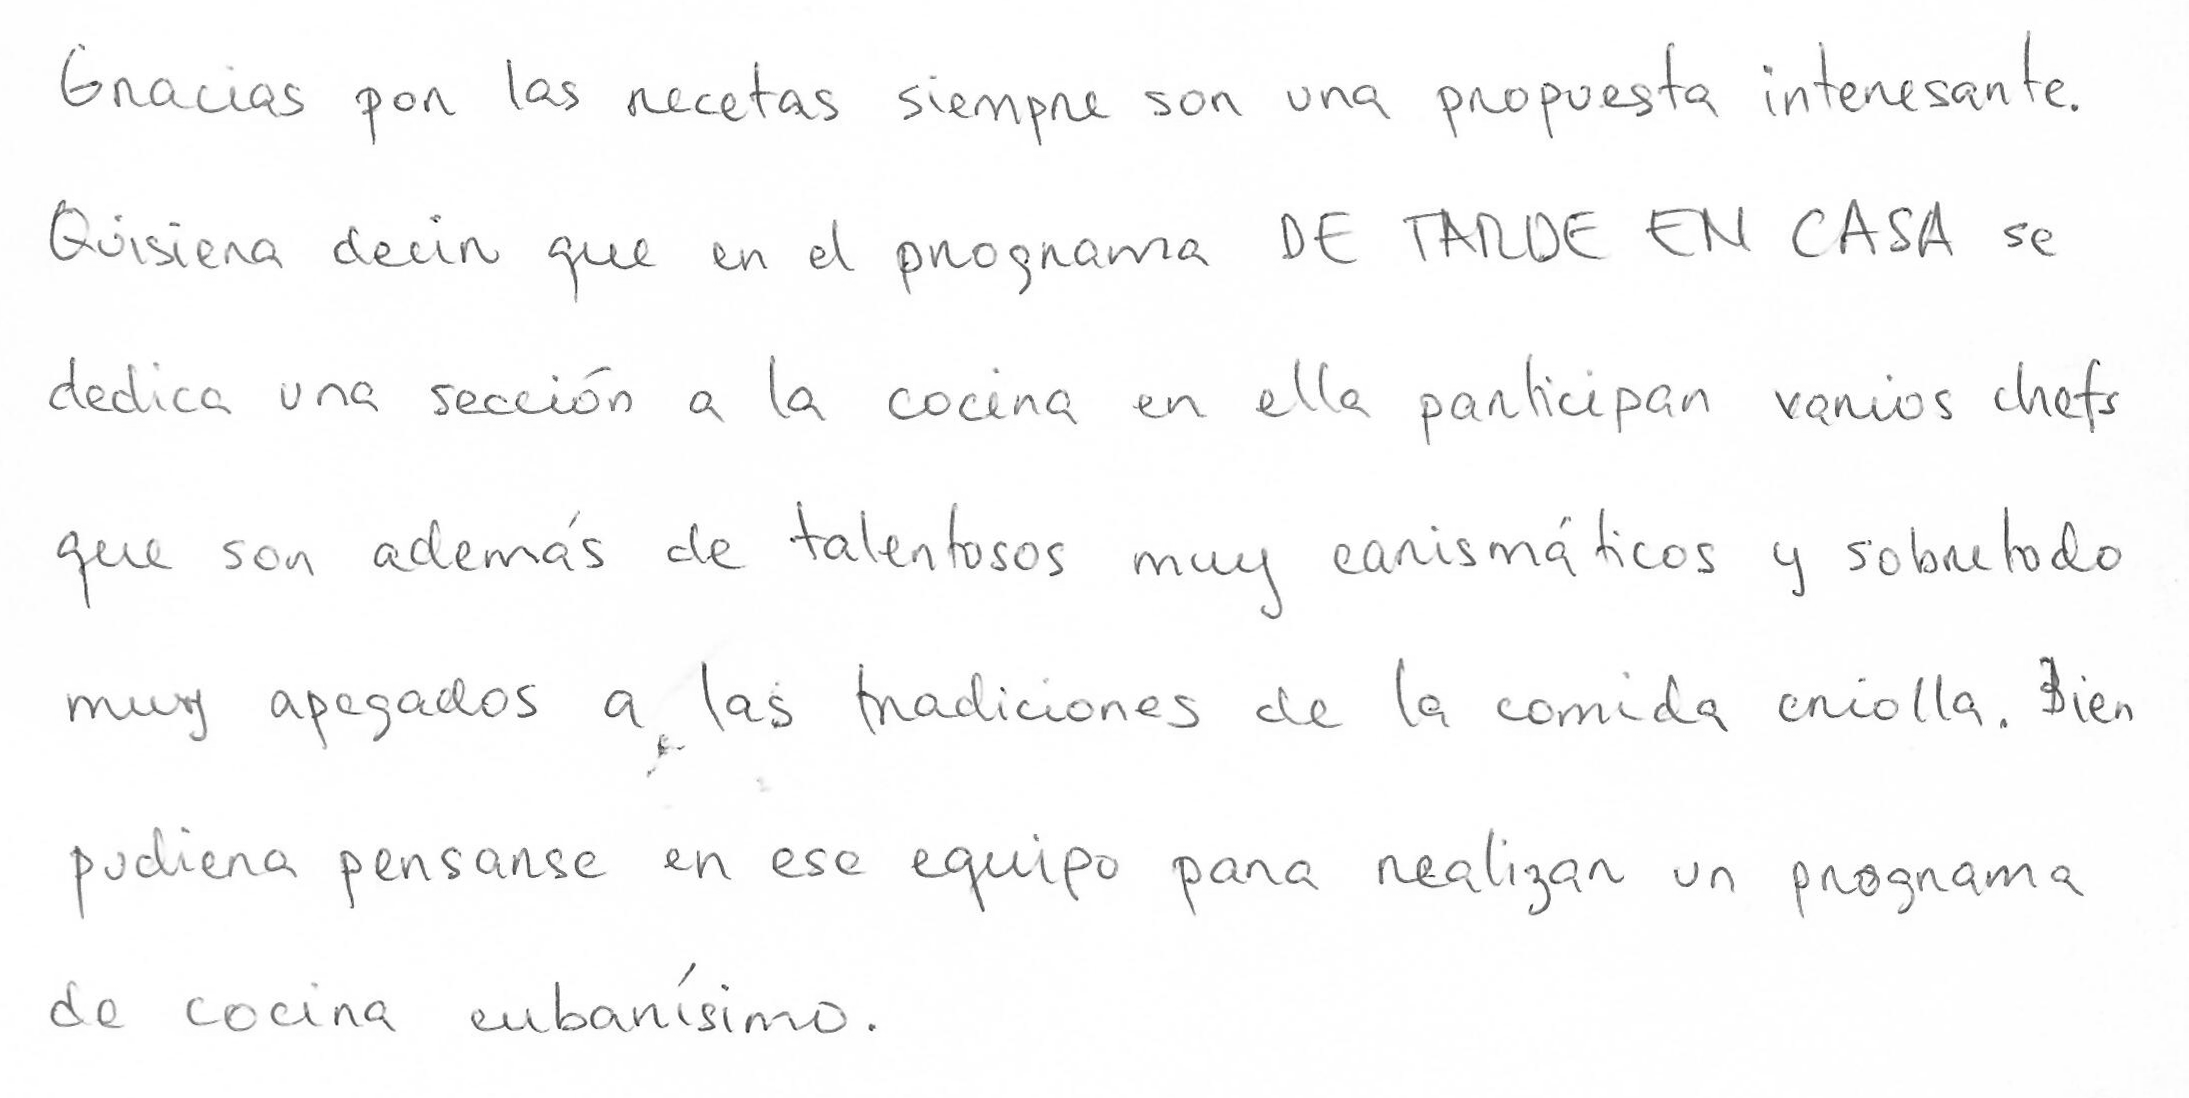 Gracias por las recetas siempre son una propuesta interesante.
Quisiera decir que en el programa DE TARDE EN CASA se
dedica una sección a la cocina en ella participan varios chefs
que son además de talentosos muy carismáticos y sobretodo
muy apegados a las tradiciones de la comida criolla. Bien
pudiera pensarse en ese equipo para realizar un programa
de cocina cubanísimo.